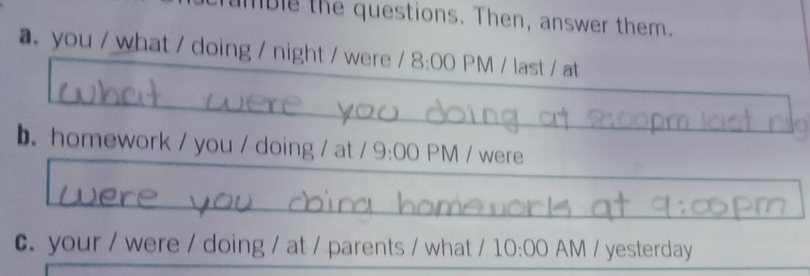 Unscramble the questions. Then, answer them.
a. you / what / doing / night / were / 8:00 PM / last / at
what were you doing at 8:00pm last nig
b. homework / you / doing / at / 9:00 PM / were
were you doing homework at 9:00pm
c. your / were / doing / at / parents / what / 10:00 AM / yesterday